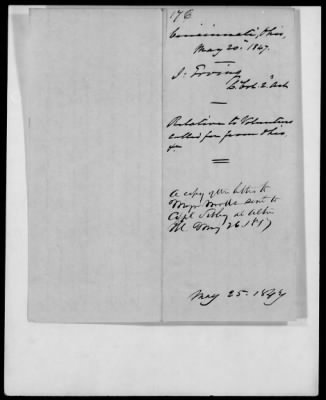 176
Cincinnati, Ohio,
May 20" 1847.
J. Erving
Lt. Col. 2" Art
Relative to Volunteers
called for from Ohio
&c
A copy of this letter to
Major sent to
Capt at Alton
Ill May 26. 1847
May 25. 1847